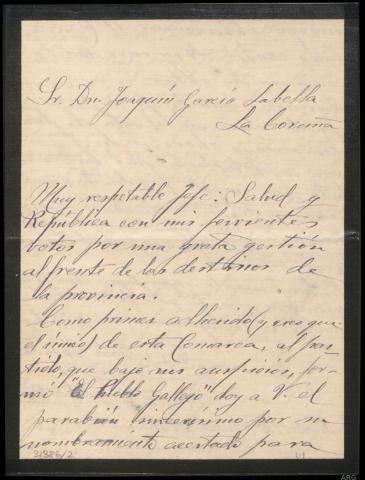 Sr. Dn. Joaquín García Labella
La Coruña
Muy respetable Jefe: Salud y
República con mis fervientes
votos por una grata gestión
al frente de los destinos de
la provincia.
Como primer adherido (y creo que
el único) de esta Comarca, al par-
tido, que bajo sus auspicios, for-
mó "El Pueblo Gallego" doy a V. el
parabién sincerísimo por su
nombramiento acertado para
31386/2
ARG